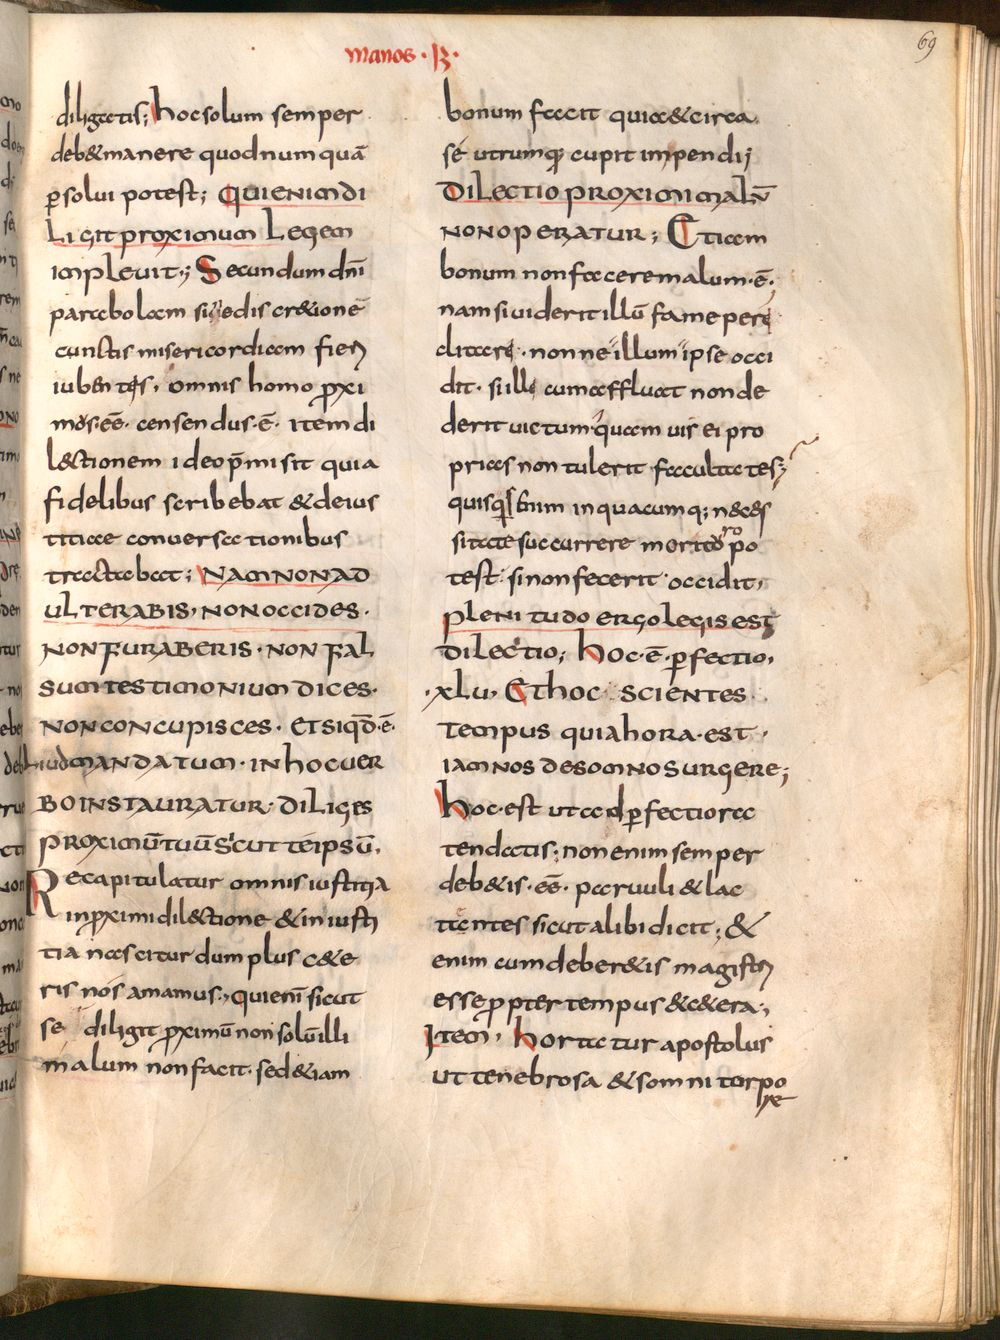 manos · R ·
69
diligatis; hoc solum semper
deb&manere quod numquā
ꝑsolui potest; QUIENIMDI
LIGITPROXIMUM LEGEM
IMPLEUIT; Secundum dn̄i
parabolam siue dis cr&ionē
cunctis misericordiam fieri
iubentis, omnis homo ꝓxi
mus·eē· censendus·ē· Item di
l&ctionem ideo p̄misit quia
fidelibus scribebat & de ius
titiae conuersationibus
tractabat; NAMNONAD
ULTERABIS, NONOCCIDES·
NONFURABERIS· NON FAL
SUMTESTIMONIUM DICES·
NONCONCUPISCES· ETSIQD̄·Ē·
aliudMANDATUM· INHOCUER
BOINSTAURATUR· DILIGES
PROXIMŪTUŪSICUT TEIPSŪ,
Recapitulatur omnis iustitia
in ꝓximi dil&ctione & iniusti
tia nascitur dum plus c&e
ris nos amamus, qui enī sicut
se diligit ꝓximū non solū illi
malum non facit· sed &iam
bonum facit quia & circa
sé utrumq; cupit impendi;
DILECTIO PROXIMI MALŪ
NONOPERATUR; Etiam
bonum non facere malum·ē·
nam si uiderit illū fame peri
clitari· nonne illum ipse occi
dit· si illi cum affluat non de
derit uictum· quam uis ei pro
prias non tulerit facultates;
quisquis enim in quacumq; neces
sitate succurrere morituro po
test· si non fecerit occidit,
PLENITUDO ERGO LEGIS EST
DILECTIO; hoc·ē·ꝑfectio,
·XLU, EThOC SCIENTES
TEMPUS QUIAHORA·EST·
IAMNOS DESOMNOSURGERE;
hoc·est ut ad ꝑfectiora
tendatis; non enim semper
deb&is·eē· paruuli & lac
tantes sicut alibi dicit; &
enim cum deber&is magistri
esse ꝓpter tempus & c&era;
Item, hortatur apostolus
ut tenebrosa & somni torpo
re